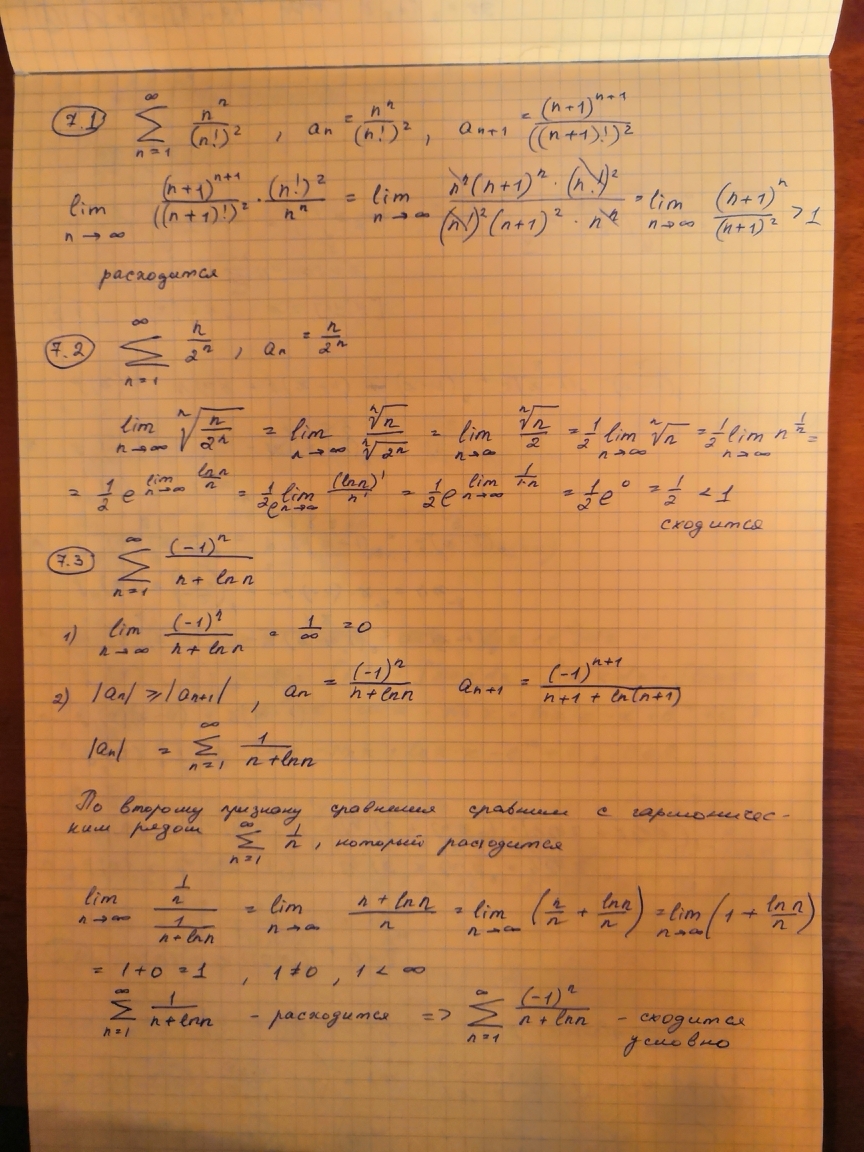 7.1 ∑_{n=1}^{∞} n^n/(n!)^2 , a_n = n^n/(n!)^2 , a_{n+1} = (n+1)^{n+1}/((n+1)!)^2
lim_{n→∞} (n+1)^{n+1}/((n+1)!)^2 · (n!)^2/n^n = lim_{n→∞} n^n (n+1)^n · (n!)^2/((n!)^2 (n+1)^2 · n^n) = lim_{n→∞} (n+1)^n/(n+1)^2 > 1
расходится
7.2 ∑_{n=1}^{∞} n/2^n , a_n = n/2^n
lim_{n→∞} ⁿ√(n/2^n) = lim_{n→∞} ⁿ√n/ⁿ√(2^n) = lim_{n→∞} ⁿ√n/2 = 1/2 lim_{n→∞} ⁿ√n = 1/2 lim_{n→∞} n^{1/n} =
= 1/2 e^{lim_{n→∞} ln n/n} = 1/2 e^{lim_{n→∞} (ln n)'/n'} = 1/2 e^{lim_{n→∞} 1/(1·n)} = 1/2 e^0 = 1/2 < 1
сходится
7.3 ∑_{n=1}^{∞} (-1)^n/(n + ln n)
1) lim_{n→∞} (-1)^n/(n + ln n) = 1/∞ = 0
2) |a_n| ≥ |a_{n+1}| , a_n = (-1)^n/(n+ln n) a_{n+1} = (-1)^{n+1}/(n+1 + ln(n+1))
|a_n| = ∑_{n=1}^{∞} 1/(n+ln n)
По второму признаку сравнения сравним с гармоничес-
ким рядом ∑_{n=1}^{∞} 1/n , который расходится
lim_{n→∞} (1/n)/(1/(n+ln n)) = lim_{n→∞} (n + ln n)/n = lim_{n→∞} (n/n + ln n/n) = lim_{n→∞} (1 + ln n/n)
= 1+0 = 1 , 1≠0 , 1 < ∞
∑_{n=1}^{∞} 1/(n+ln n) - расходится => ∑_{n=1}^{∞} (-1)^n/(n + ln n) - сходится
условно